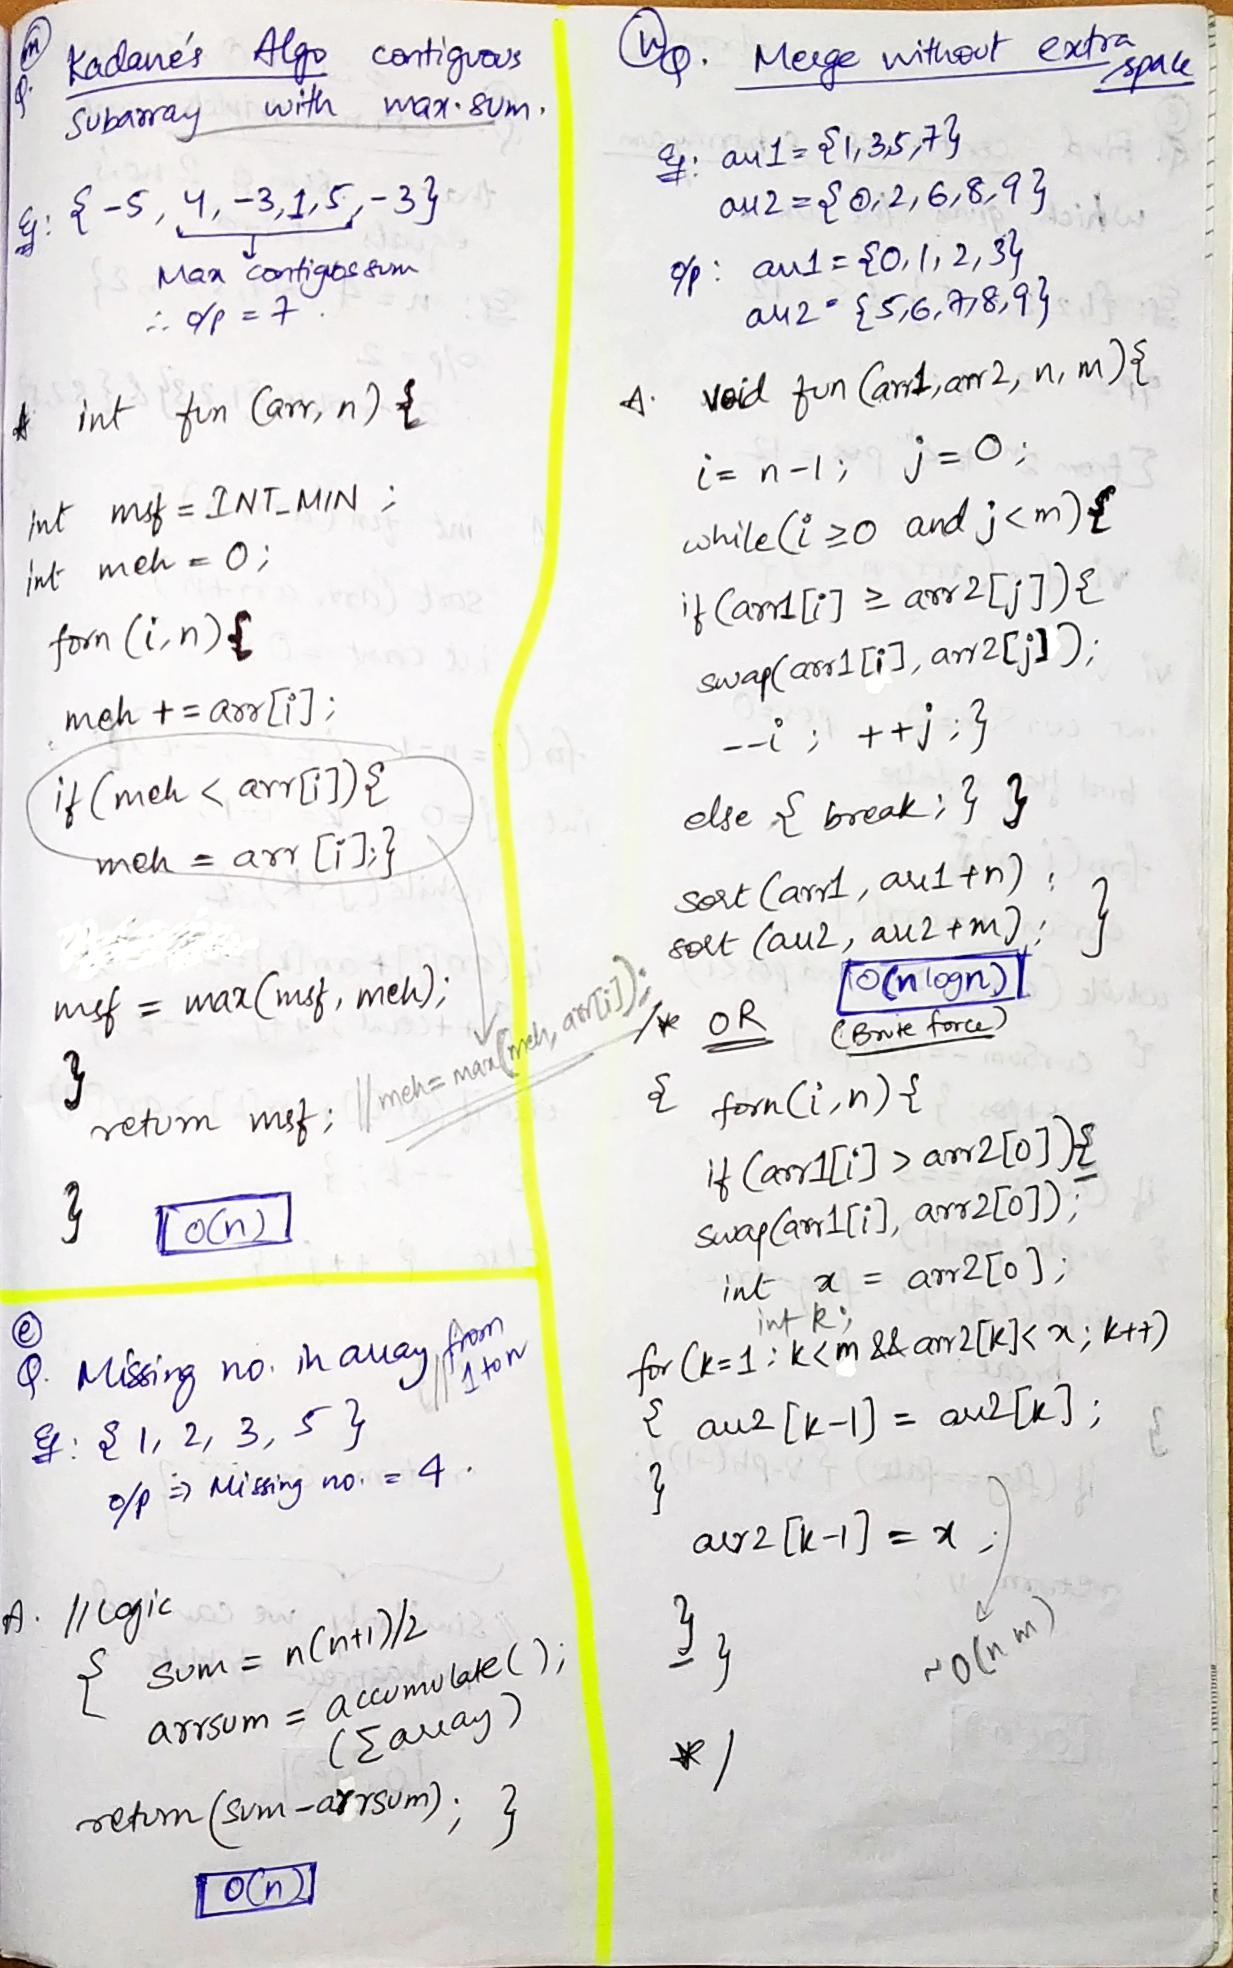 (m)
Q. Kadane's Algo contiguous
Subarray with max. sum.
Eg: {-5, 4, -3, 1, 5, -3}
Max contiguos sum
∴ o/p = 7.
A int fun (arr, n) {
int msf = INT_MIN ;
int meh = 0;
forn (i, n) {
meh += arr[i];
if (meh < arr[i]) {
meh = arr [i];}
msf = max(msf, meh);
}
return msf; // meh = max(meh, arr[i]);
}
O(n)
(e)
Q. Missing no. in array // from 1 to n
Eg: {1, 2, 3, 5}
o/p ⇒ Missing no. = 4.
A. // Logic
{ sum = n(n+1)/2
arrsum = accumulate();
(Σ array)
return (sum - arrsum); }
O(n)
(n) Q. Merge without extra space
Eg: arr1 = {1, 3, 5, 7}
arr2 = {0, 2, 6, 8, 9}
o/p: arr1 = {0, 1, 2, 3}
arr2 = {5, 6, 7, 8, 9}
A. void fun (arr1, arr2, n, m) {
i = n-1; j = 0;
while (i ≥ 0 and j < m) {
if (arr1[i] ≥ arr2[j]) {
swap(arr1[i], arr2[j]);
--i ; ++j ; }
else { break; } }
sort (arr1, arr1+n);
sort (arr2, arr2+m); }
O(n log n)
(Brute force)
/* OR
{ forn(i, n) {
if (arr1[i] > arr2[0]) {
swap(arr1[i], arr2[0]);
int x = arr2[0];
int k;
for (k=1; k<m && arr2[k]< x; k++)
{ arr2 [k-1] = arr2 [k];
}
arr2 [k-1] = x ;
} }
~O(n m)
*/